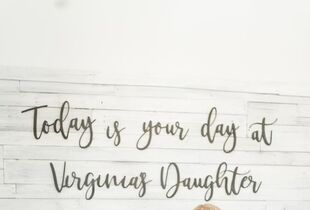 Today is your day at
Virginias Daughter